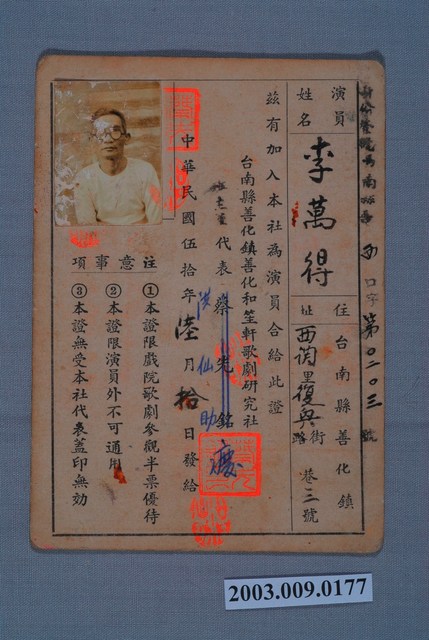 第〇二〇三號
演員
姓名
李萬得
住台南縣善化鎮
址西關里復興街路巷三號
茲有加入本社為演員合給此證
台南縣善化鎮善化和笙軒歌劇研究社
代表蔡光銘
洪仙助
中華民國伍拾年陸月拾日發給
注意事項
①本證限戲院歌劇參觀半票優待
②本證限演員外不可通用
③本證無受本社代表蓋印無効
2003.009.0177